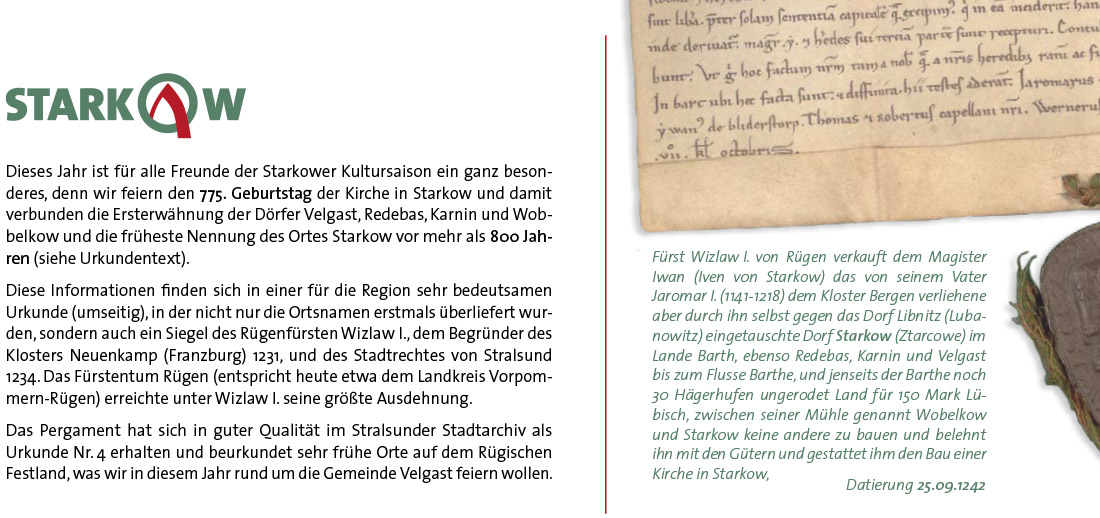 STARKOW
Dieses Jahr ist für alle Freunde der Starkower Kultursaison ein ganz beson-
deres, denn wir feiern den 775. Geburtstag der Kirche in Starkow und damit
verbunden die Ersterwähnung der Dörfer Velgast, Redebas, Karnin und Wob-
belkow und die früheste Nennung des Ortes Starkow vor mehr als 800 Jah-
ren (siehe Urkundentext).
Diese Informationen finden sich in einer für die Region sehr bedeutsamen
Urkunde (umseitig), in der nicht nur die Ortsnamen erstmals überliefert wur-
den, sondern auch ein Siegel des Rügenfürsten Wizlaw I., dem Begründer des
Klosters Neuenkamp (Franzburg) 1231, und des Stadtrechtes von Stralsund
1234. Das Fürstentum Rügen (entspricht heute etwa dem Landkreis Vorpom-
mern-Rügen) erreichte unter Wizlaw I. seine größte Ausdehnung.
Das Pergament hat sich in guter Qualität im Stralsunder Stadtarchiv als
Urkunde Nr. 4 erhalten und beurkundet sehr frühe Orte auf dem Rügischen
Festland, was wir in diesem Jahr rund um die Gemeinde Velgast feiern wollen.
sunt libа. pret solam sententiā capitalē
inde deriuat. magr. y. 7 hedes sui terciā parte sunt recepturi.
bunt. Vt g hoc factum nrm tam a nob q a nris heredibz ratū ac
In barc ubi hec facta sunt. 7 diffinita. hii testes aderāt. Jaromarus
ywan de bliderstorp. Thomas 7 robertus capellani nri. Werneru
.vii. kl octobris.
Fürst Wizlaw I. von Rügen verkauft dem Magister
Iwan (Iven von Starkow) das von seinem Vater
Jaromar I. (1141-1218) dem Kloster Bergen verliehene
aber durch ihn selbst gegen das Dorf Libnitz (Luba-
nowitz) eingetauschte Dorf Starkow (Ztarcowe) im
Lande Barth, ebenso Redebas, Karnin und Velgast
bis zum Flusse Barthe, und jenseits der Barthe noch
30 Hägerhufen ungerodet Land für 150 Mark Lü-
bisch, zwischen seiner Mühle genannt Wobelkow
und Starkow keine andere zu bauen und belehnt
ihn mit den Gütern und gestattet ihm den Bau einer
Kirche in Starkow,
Datierung 25.09.1242